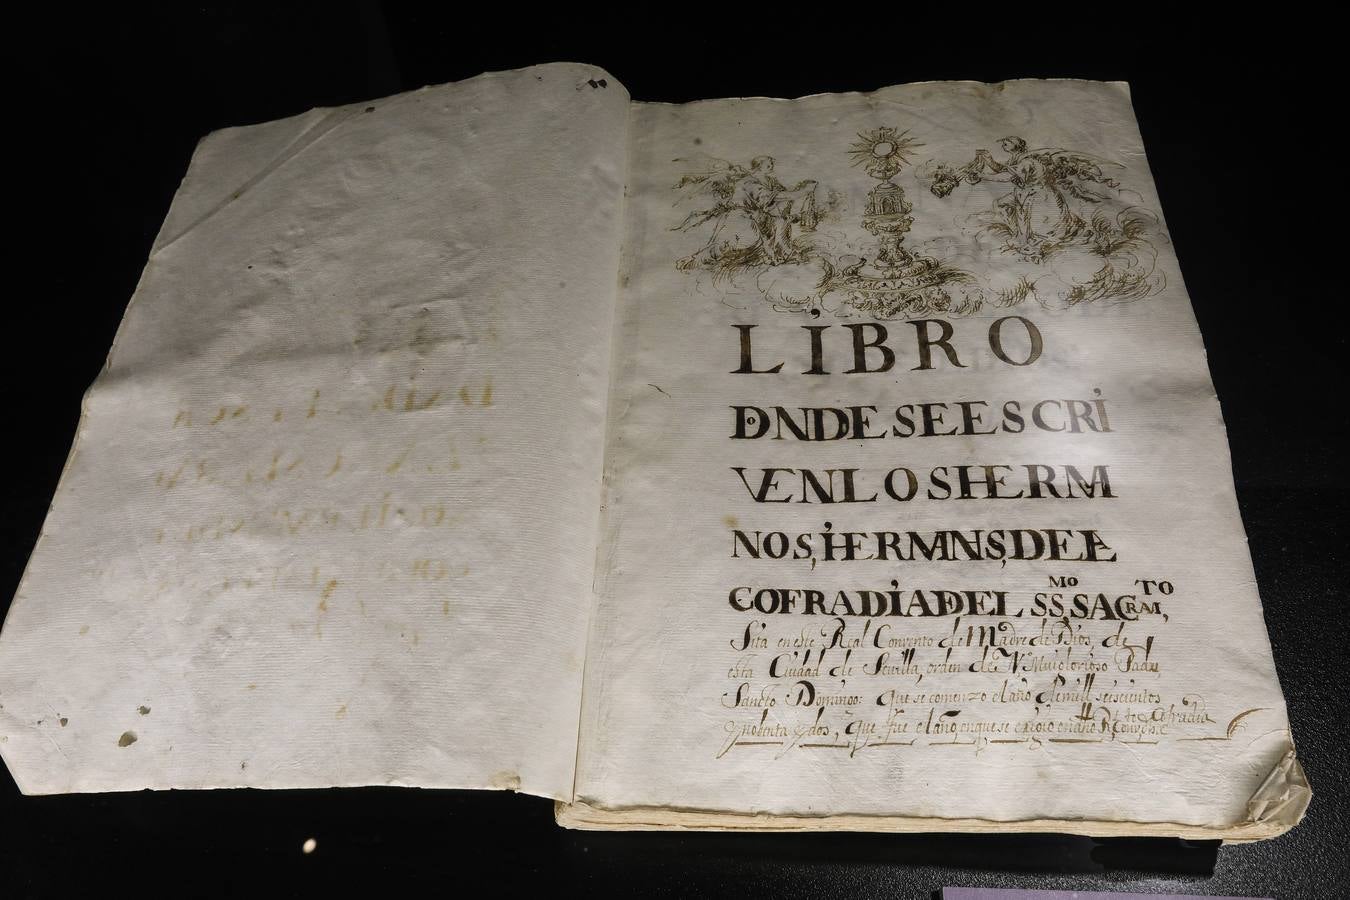 LIBRO
DNDE SE ESCRI
VEN LOS HERMA
NOS, HERMANAS, DE LA
COFRADIA DEL SS.MO SACRAM,TO
Sita en este Real Convento de Madre de Dios, de
esta Ciudad de Sevilla, orden de N. Mui glorioso Padre
Sancto Domingo: Que se comenzo el año de mill seiscientos
y nobenta y dos, que fue el año en que se erixio en dho Rl. Convto. Cofradia